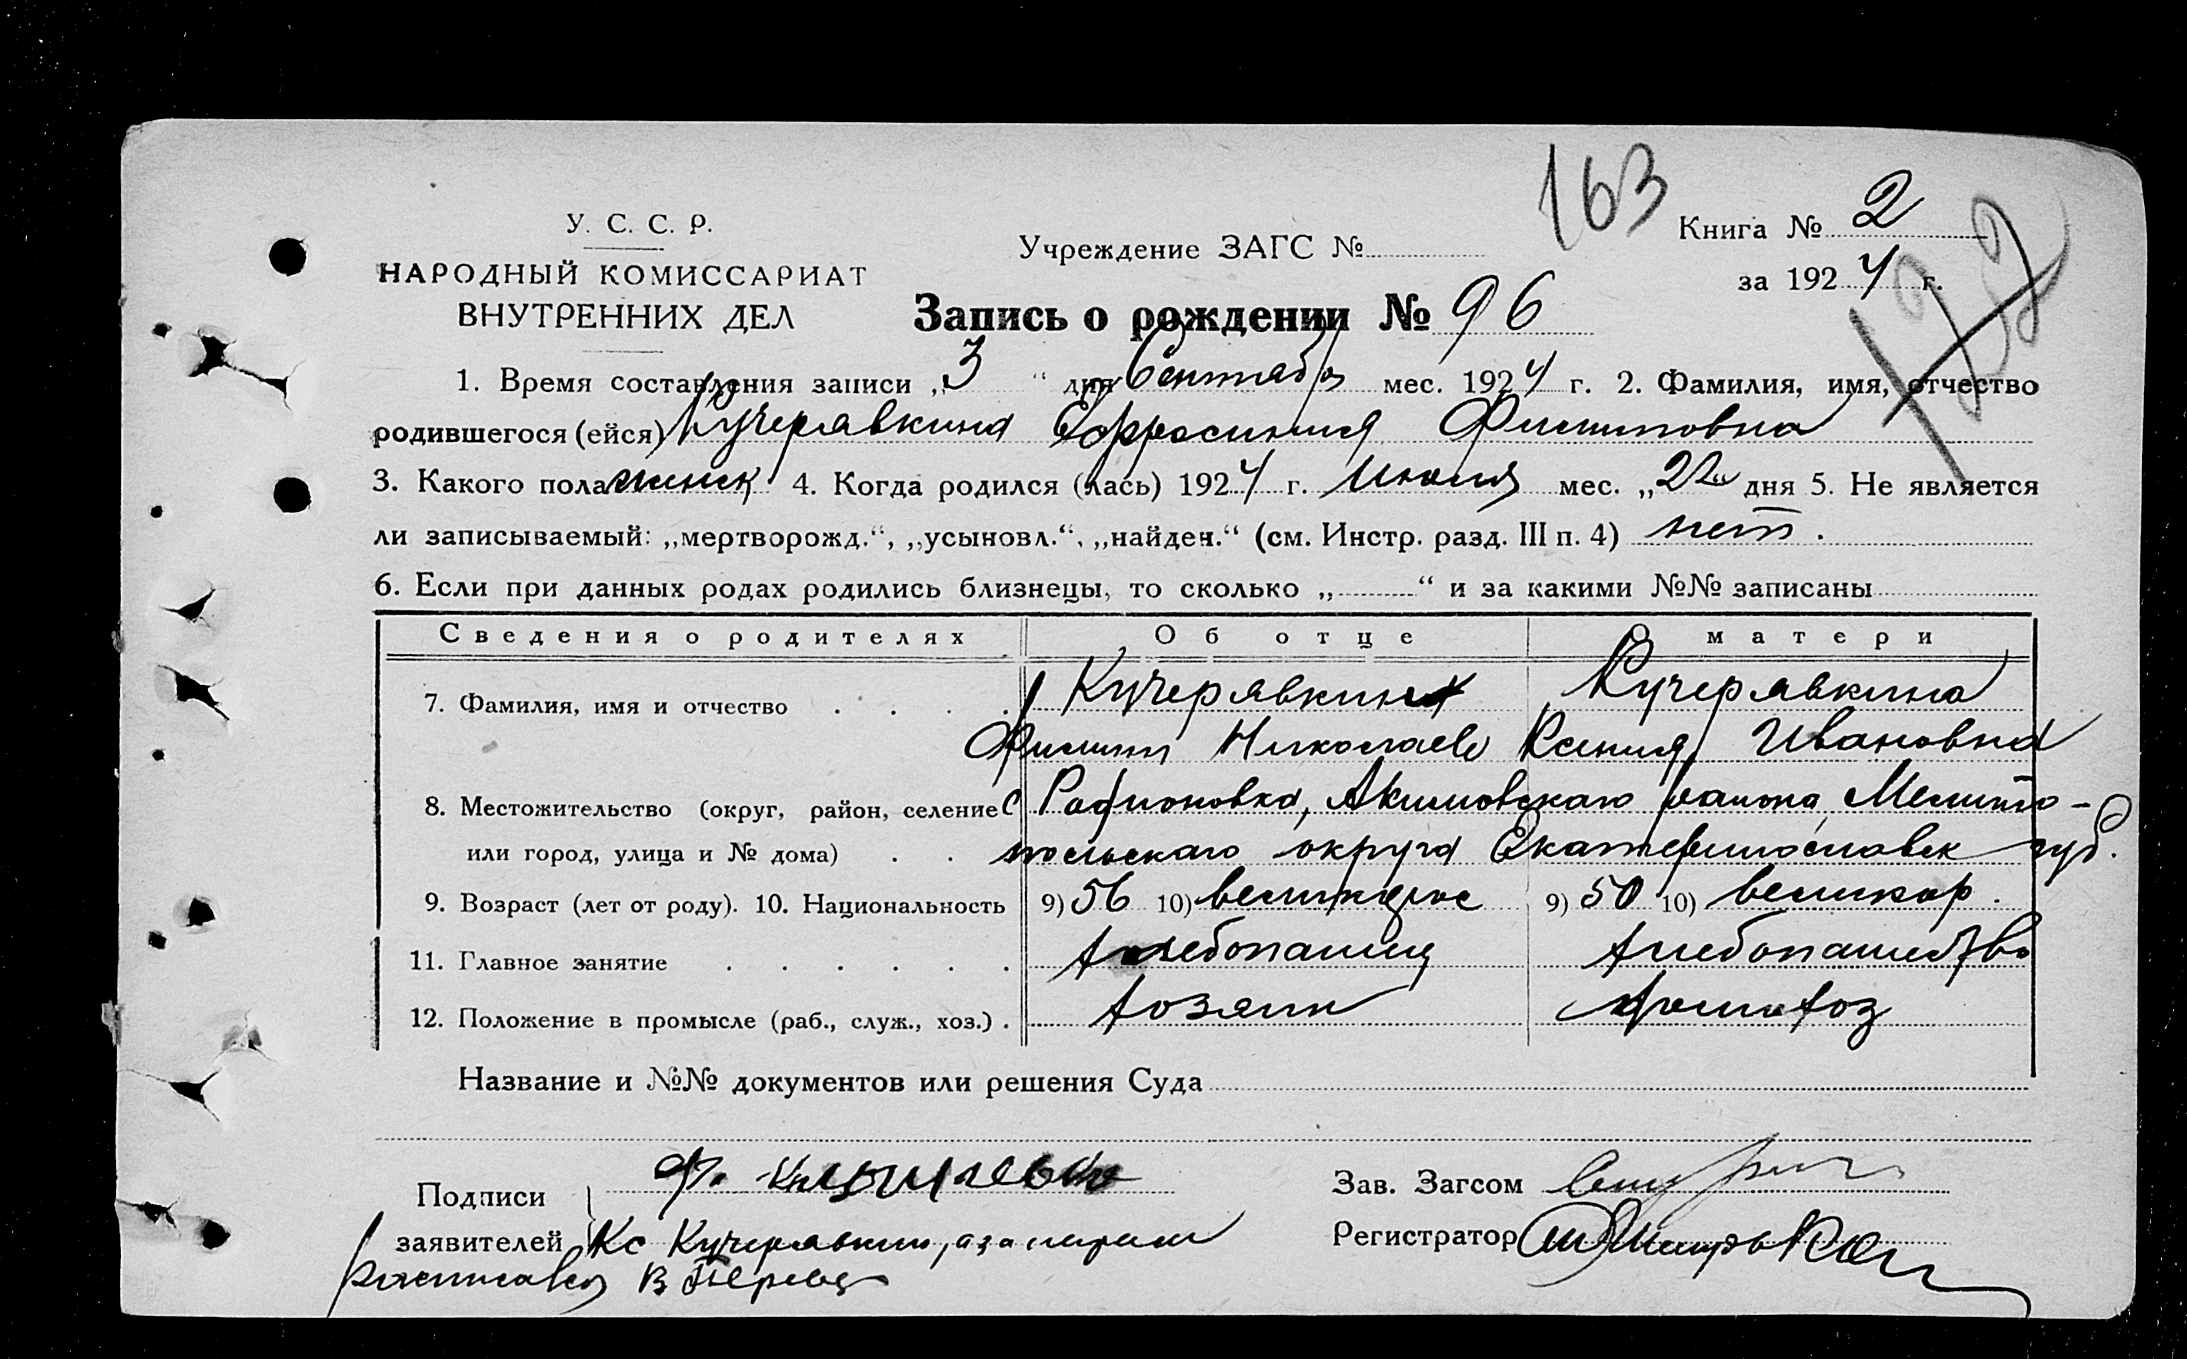 163
У. С. С. Р.
НАРОДНЫЙ КОМИССАРИАТ
ВНУТРЕННИХ ДЕЛ
Учреждение ЗАГС №
Книга № 2
за 1924 г.
122
Запись о рождении № 96
1. Время составления записи „3“ дня Сентября мес. 1924 г. 2. Фамилия, имя, отчество
родившегося (ейся) Кучерявкина Ефросиния Филиповна
3. Какого пола женск 4. Когда родился (лась) 1924 г. Июля мес. „22“ дня 5. Не является
ли записываемый: „мертворожд.“, „усыновл.“, „найден.“ (см. Инстр. разд. III п. 4) нет.
6. Если при данных родах родились близнецы, то сколько „ “ и за какими №№ записаны
Сведения о родителях Об отце О матери
7. Фамилия, имя и отчество Кучерявкин Кучерявкина
Филипп Николаев Ксения Ивановна
8. Местожительство (округ, район, селение С Родионовка, Акимовскаго района, Мелито-
или город, улица и № дома) польскаго округа Екатеринославск губ.
9. Возраст (лет от роду). 10. Национальность 9) 56 10) великорос 9) 50 10) великор.
11. Главное занятие хлебопашец хлебопашество
12. Положение в промысле (раб., служ., хоз.) хозяин домохоз
Название и №№ документов или решения Суда
Подписи Ф.
заявителей Кс Кучерявкин, а за
расписался В
Зав. Загсом
Регистратор